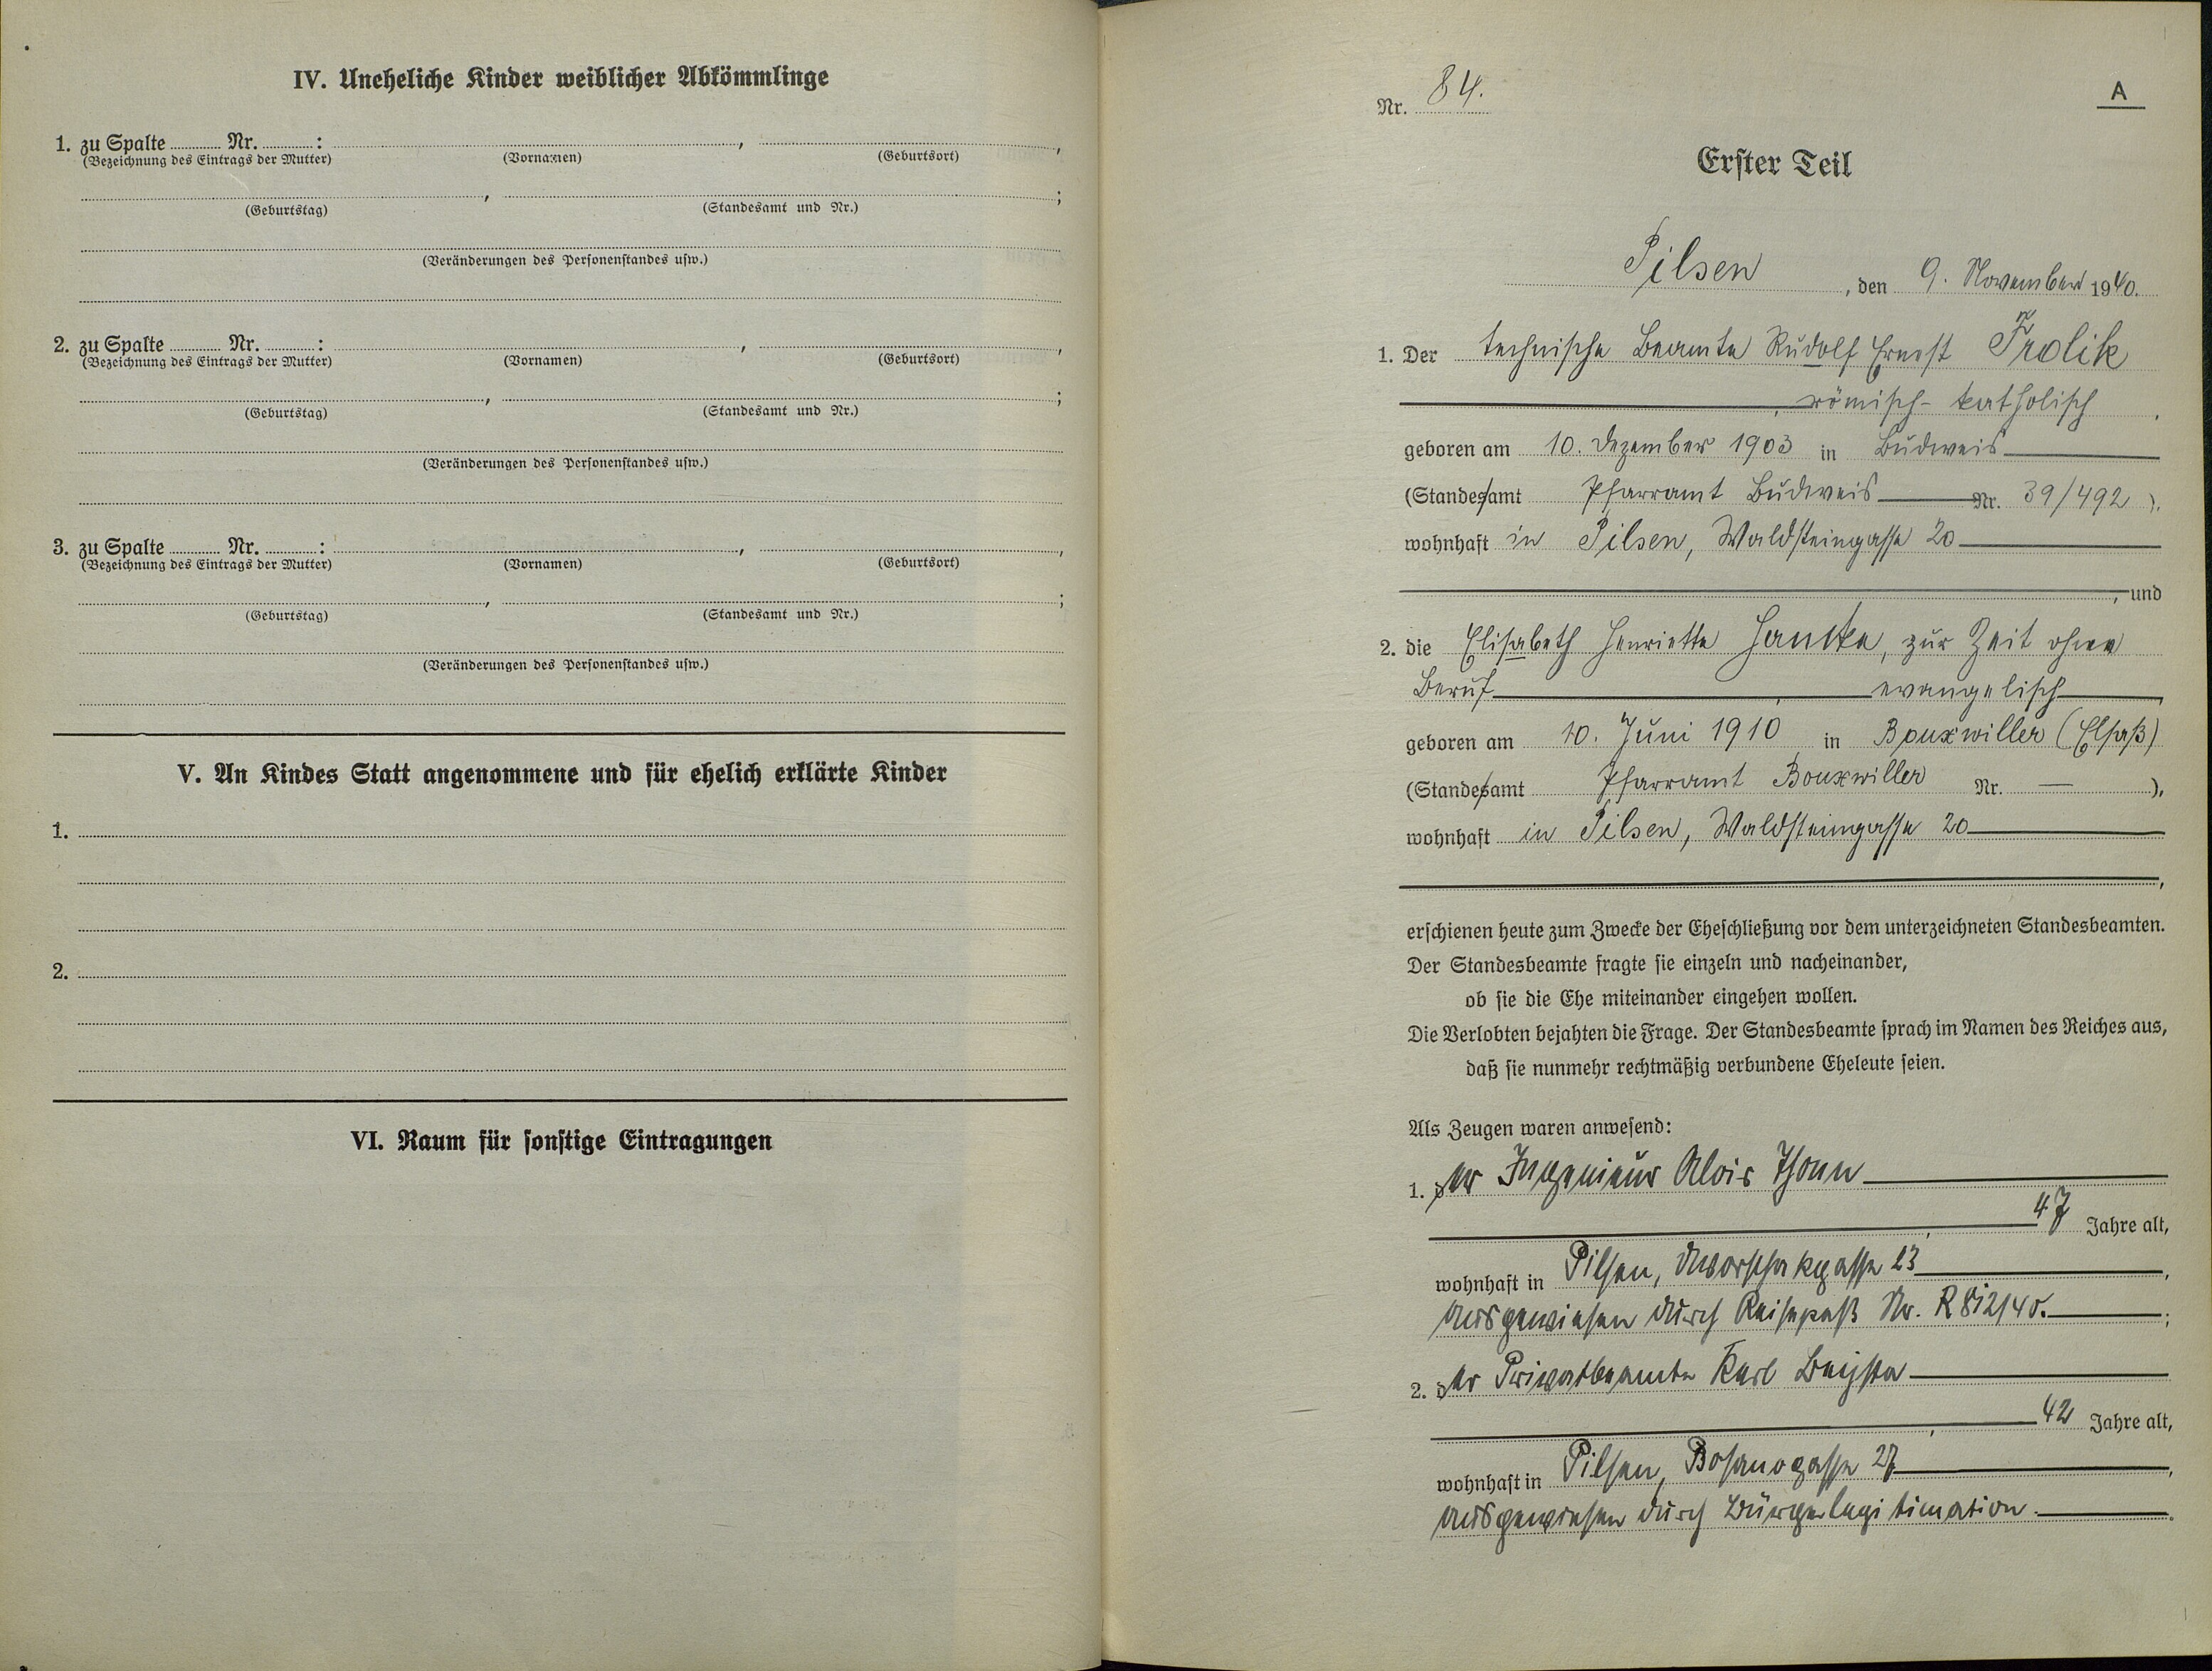 IV. Uneheliche Kinder weiblicher Abkömmlinge
1. zu Spalte ........ Nr. ........ : ........ , ........ ,
(Bezeichnung des Eintrags der Mutter) (Vornamen) (Geburtsort)
........ , ........ ;
(Geburtstag) (Standesamt und Nr.)
(Veränderungen des Personenstandes usw.)
2. zu Spalte ........ Nr. ........ : ........ , ........ ,
(Bezeichnung des Eintrags der Mutter) (Vornamen) (Geburtsort)
........ , ........ ;
(Geburtstag) (Standesamt und Nr.)
(Veränderungen des Personenstandes usw.)
3. zu Spalte ........ Nr. ........ : ........ , ........ ,
(Bezeichnung des Eintrags der Mutter) (Vornamen) (Geburtsort)
........ , ........ ;
(Geburtstag) (Standesamt und Nr.)
(Veränderungen des Personenstandes usw.)
V. An Kindes Statt angenommene und für ehelich erklärte Kinder
1.
2.
VI. Raum für sonstige Eintragungen
Nr. 84.
A
Erster Teil
Pilsen, den 9. November 1940.
1. Der technische Beamte Rudolf Ernest
römisch-katholisch,
geboren am 10. Dezember 1903 in Budweis
(Standesamt Pfarramt Budweis Nr. 39/492),
wohnhaft in Pilsen, Waldsteingasse 20
, und
2. die Elisabeth Henriette, zur Zeit ohne
Beruf, evangelisch,
geboren am 10. Juni 1910 in Bouxwiller (Elsaß)
(Standesamt Pfarramt Bouxwiller Nr. — ),
wohnhaft in Pilsen, Waldsteingasse 20
,
erschienen heute zum Zwecke der Eheschließung vor dem unterzeichneten Standesbeamten.
Der Standesbeamte fragte sie einzeln und nacheinander,
ob sie die Ehe miteinander eingehen wollen.
Die Verlobten bejahten die Frage. Der Standesbeamte sprach im Namen des Reiches aus,
daß sie nunmehr rechtmäßig verbundene Eheleute seien.
Als Zeugen waren anwesend:
1. der Ingenieur Alois Thonn
, 47 Jahre alt,
wohnhaft in Pilsen, Dworschakgasse 23,
ausgewiesen durch Reisepaß Nr. R 812/40. ;
2. der Privatbeamte Karl
, 42 Jahre alt,
wohnhaft in Pilsen, Bosanogasse 27,
ausgewiesen durch Bürgerlegitimation.